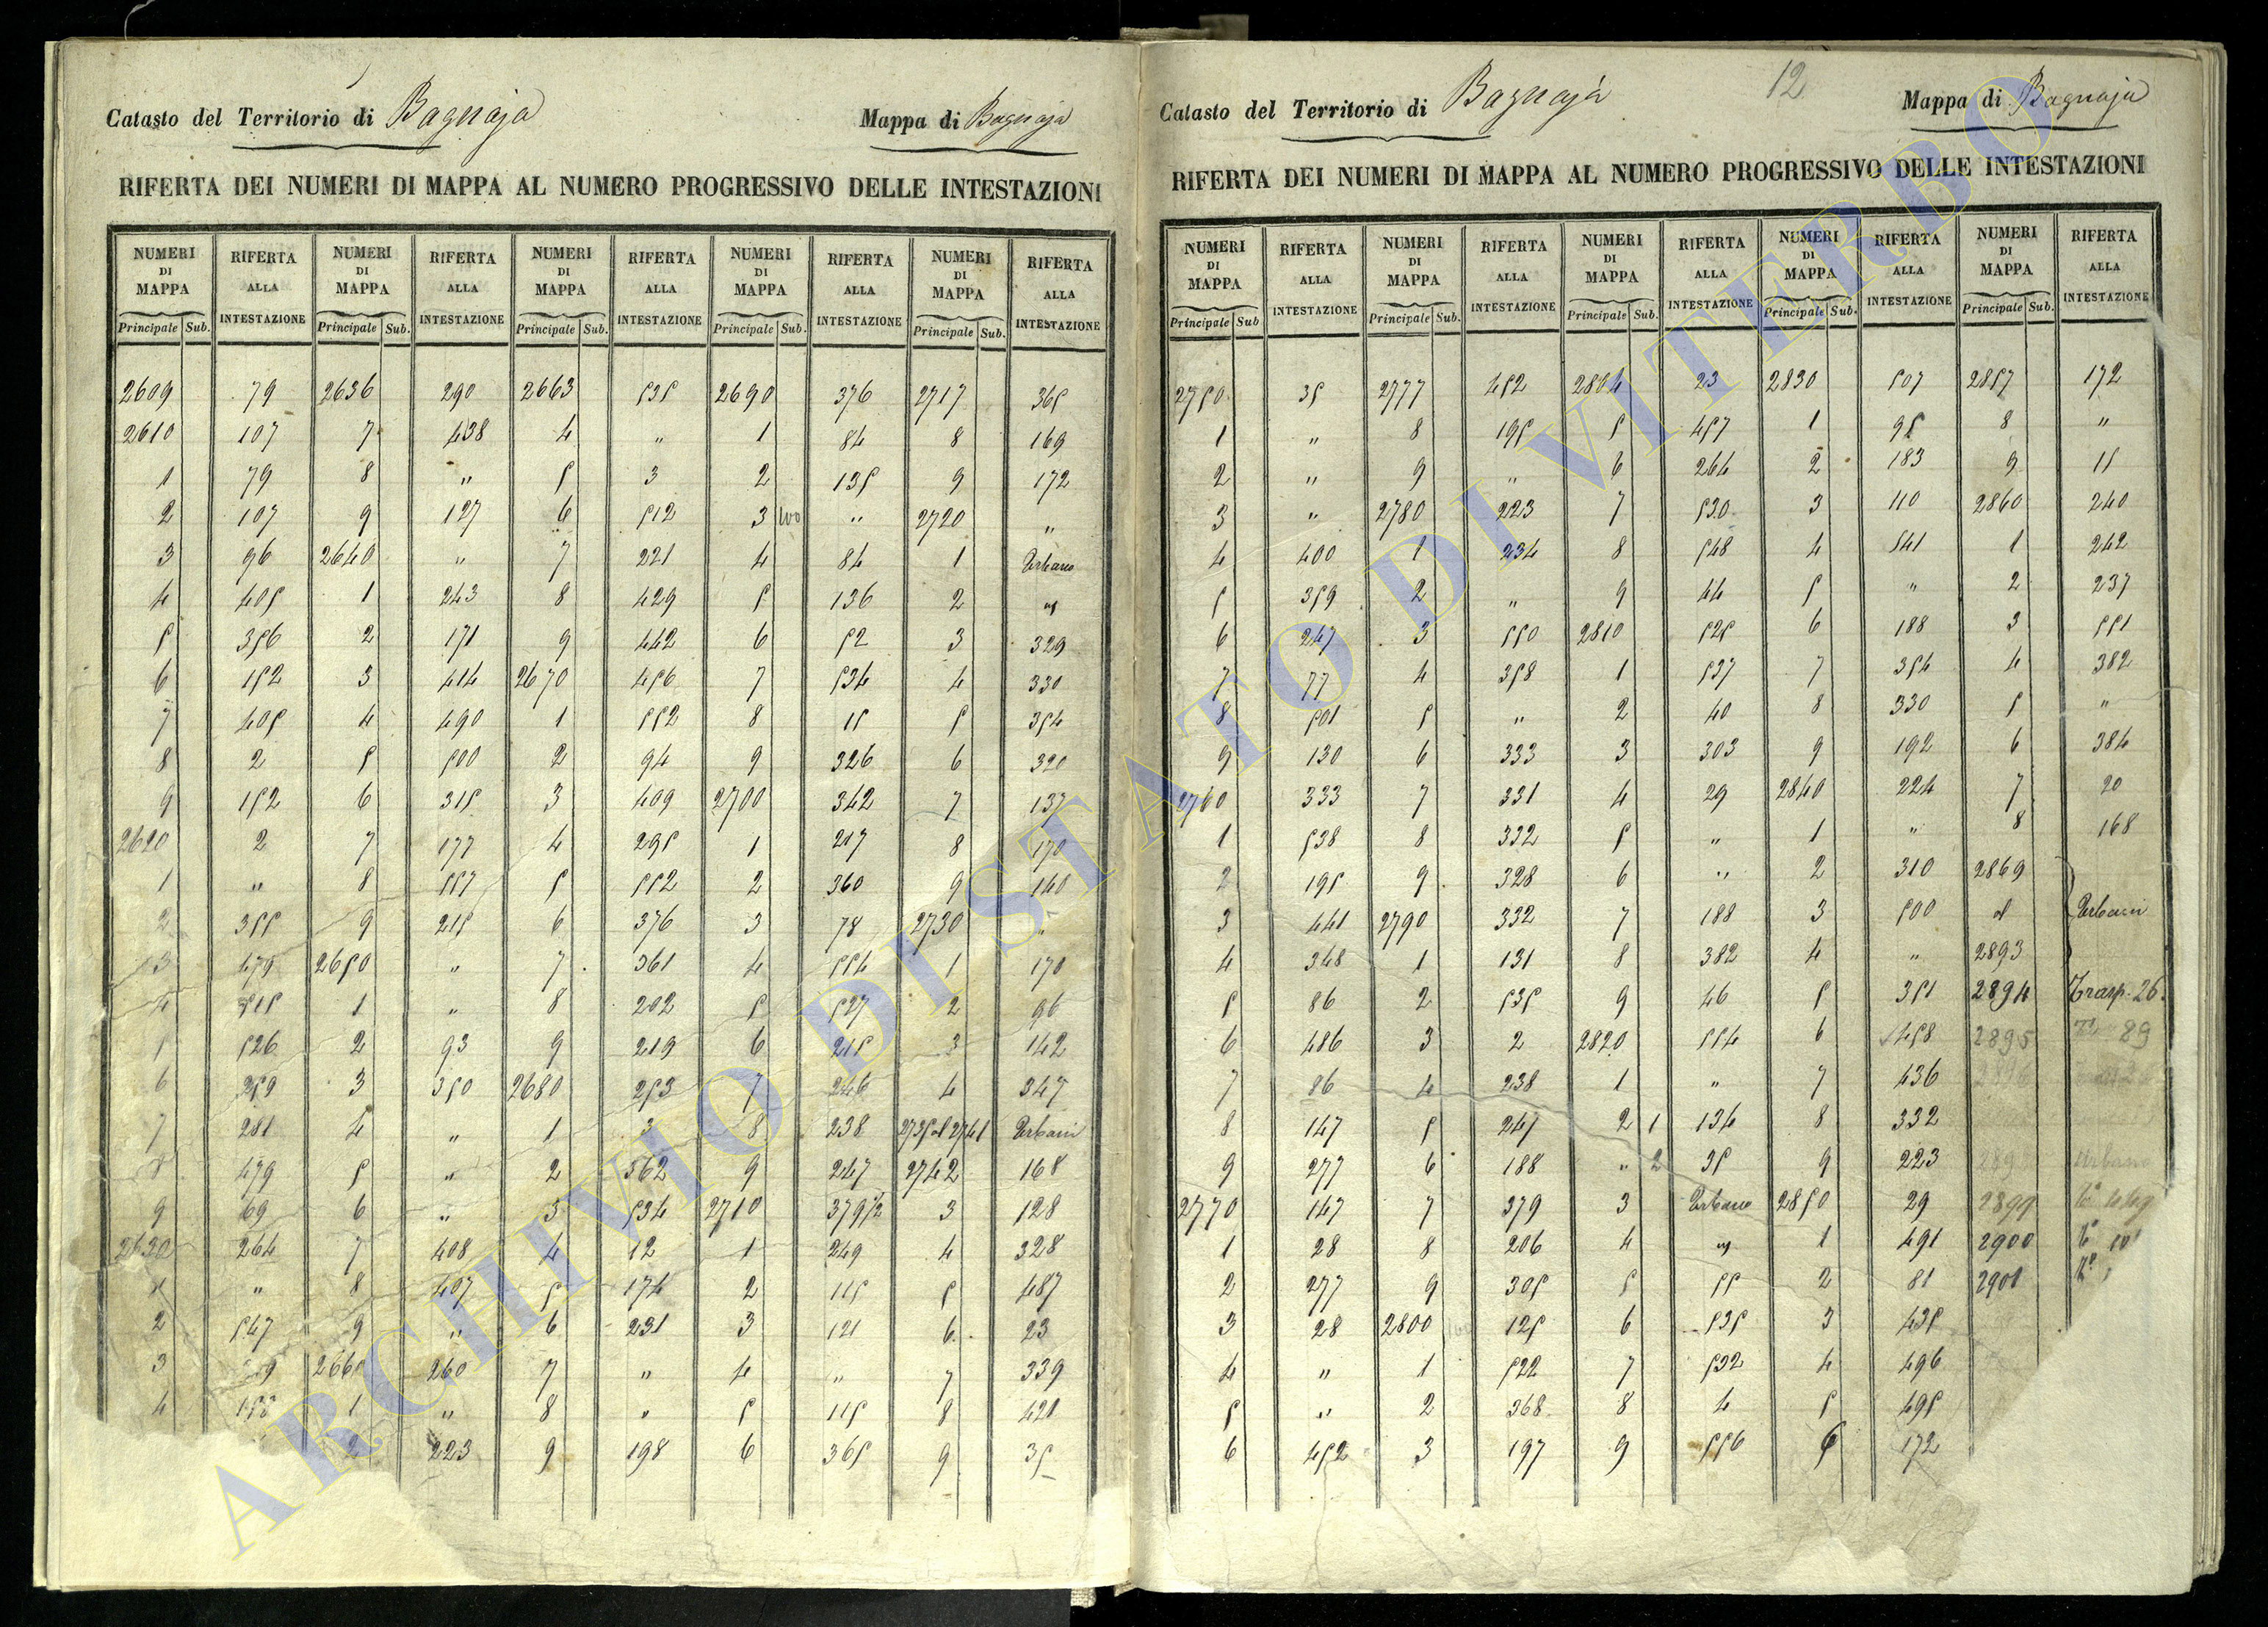 12
Catasto del Territorio di Bagnaja Mappa di Bagnaja
RIFERTA DEI NUMERI DI MAPPA AL NUMERO PROGRESSIVO DELLE INTESTAZIONI
NUMERI DI MAPPA RIFERTA ALLA INTESTAZIONE NUMERI DI MAPPA RIFERTA ALLA INTESTAZIONE NUMERI DI MAPPA RIFERTA ALLA INTESTAZIONE NUMERI DI MAPPA RIFERTA ALLA INTESTAZIONE NUMERI DI MAPPA RIFERTA ALLA INTESTAZIONE
Principale Sub. Principale Sub. Principale Sub. Principale Sub. Principale Sub.
2609 79 2636 290 2663 535 2690 376 2717 365
2610 107 7 438 4 " 1 84 8 169
1 79 8 " 5 3 2 135 9 172
2 107 9 127 6 512 3 " 2720 "
3 96 2640 " 7 221 4 84 1 Urbano
4 405 1 243 8 429 5 136 2
5 356 2 171 9 442 6 52 3 329
6 152 3 414 2670 456 7 534 4 330
7 405 4 490 1 552 8 15 5 354
8 2 5 500 2 94 9 326 6 320
9 152 6 315 3 409 2700 342 7 137
2620 2 7 177 4 295 1 217 8 170
1 " 8 557 5 552 2 360 9 140
2 355 9 215 6 376 3 78 2730 "
3 479 2650 " 7 361 4 554 1 170
4 515 1 " 8 202 5 527 2 96
5 526 2 93 9 219 6 215 3 142
6 259 3 350 2680 253 7 246 4 347
7 281 4 " 1 3 8 238 2735 al 2741 Urbani
8 479 5 " 2 562 9 247 2742 168
9 69 6 " 3 534 2710 379 1/2 3 128
2630 264 7 408 4 12 1 249 4 328
1 " 8 407 5 174 2 115 5 487
2 547 9 " 6 231 3 121 6 23
3 9 2660 260 7 " 4 " 7 339
4 1 " 8 " 5 115 8 421
2 223 9 198 6 365 9 35
Catasto del Territorio di Bagnaja Mappa di Bagnaja
RIFERTA DEI NUMERI DI MAPPA AL NUMERO PROGRESSIVO DELLE INTESTAZIONI
NUMERI DI MAPPA RIFERTA ALLA INTESTAZIONE NUMERI DI MAPPA RIFERTA ALLA INTESTAZIONE NUMERI DI MAPPA RIFERTA ALLA INTESTAZIONE NUMERI DI MAPPA RIFERTA ALLA INTESTAZIONE NUMERI DI MAPPA RIFERTA ALLA INTESTAZIONE
Principale Sub Principale Sub. Principale Sub. Principale Sub. Principale Sub.
2750 35 2777 452 2804 23 2830 507 2857 172
1 " 8 195 5 457 1 95 8 "
2 " 9 " 6 264 2 183 9 15
3 " 2780 223 7 530 3 110 2860 240
4 400 1 234 8 548 4 541 1 242
5 359 2 " 9 44 5 " 2 237
6 247 3 550 2810 525 6 188 3 551
7 77 4 358 1 537 7 354 4 382
8 501 5 " 2 40 8 330 5 "
9 130 6 333 3 303 9 192 6 384
2760 333 7 331 4 29 2840 224 7 20
1 538 8 332 5 " 1 " 8 168
2 195 9 328 6 " 2 310 2869
3 441 2790 332 7 188 3 500 al Urbani
4 348 1 131 8 382 4 " 2893
5 86 2 535 9 46 5 351 2894 Trasp. 26
6 486 3 2 2820 554 6 458 2895 89
7 86 4 238 1 " 7 436 2896
8 147 5 247 2 1 134 8 332
9 277 6 188 " 2 35 9 223 Urbano
2770 147 7 379 3 Urbano 2850 29 2899
1 28 8 206 4 1 491 2900
2 277 9 305 5 55 2 81 2901
3 28 2800 125 6 535 3 435
4 " 1 522 7 532 4 496
5 " 2 368 8 4 5 495
6 452 3 197 9 556 6 172
ARCHIVIO DI STATO DI VITERBO